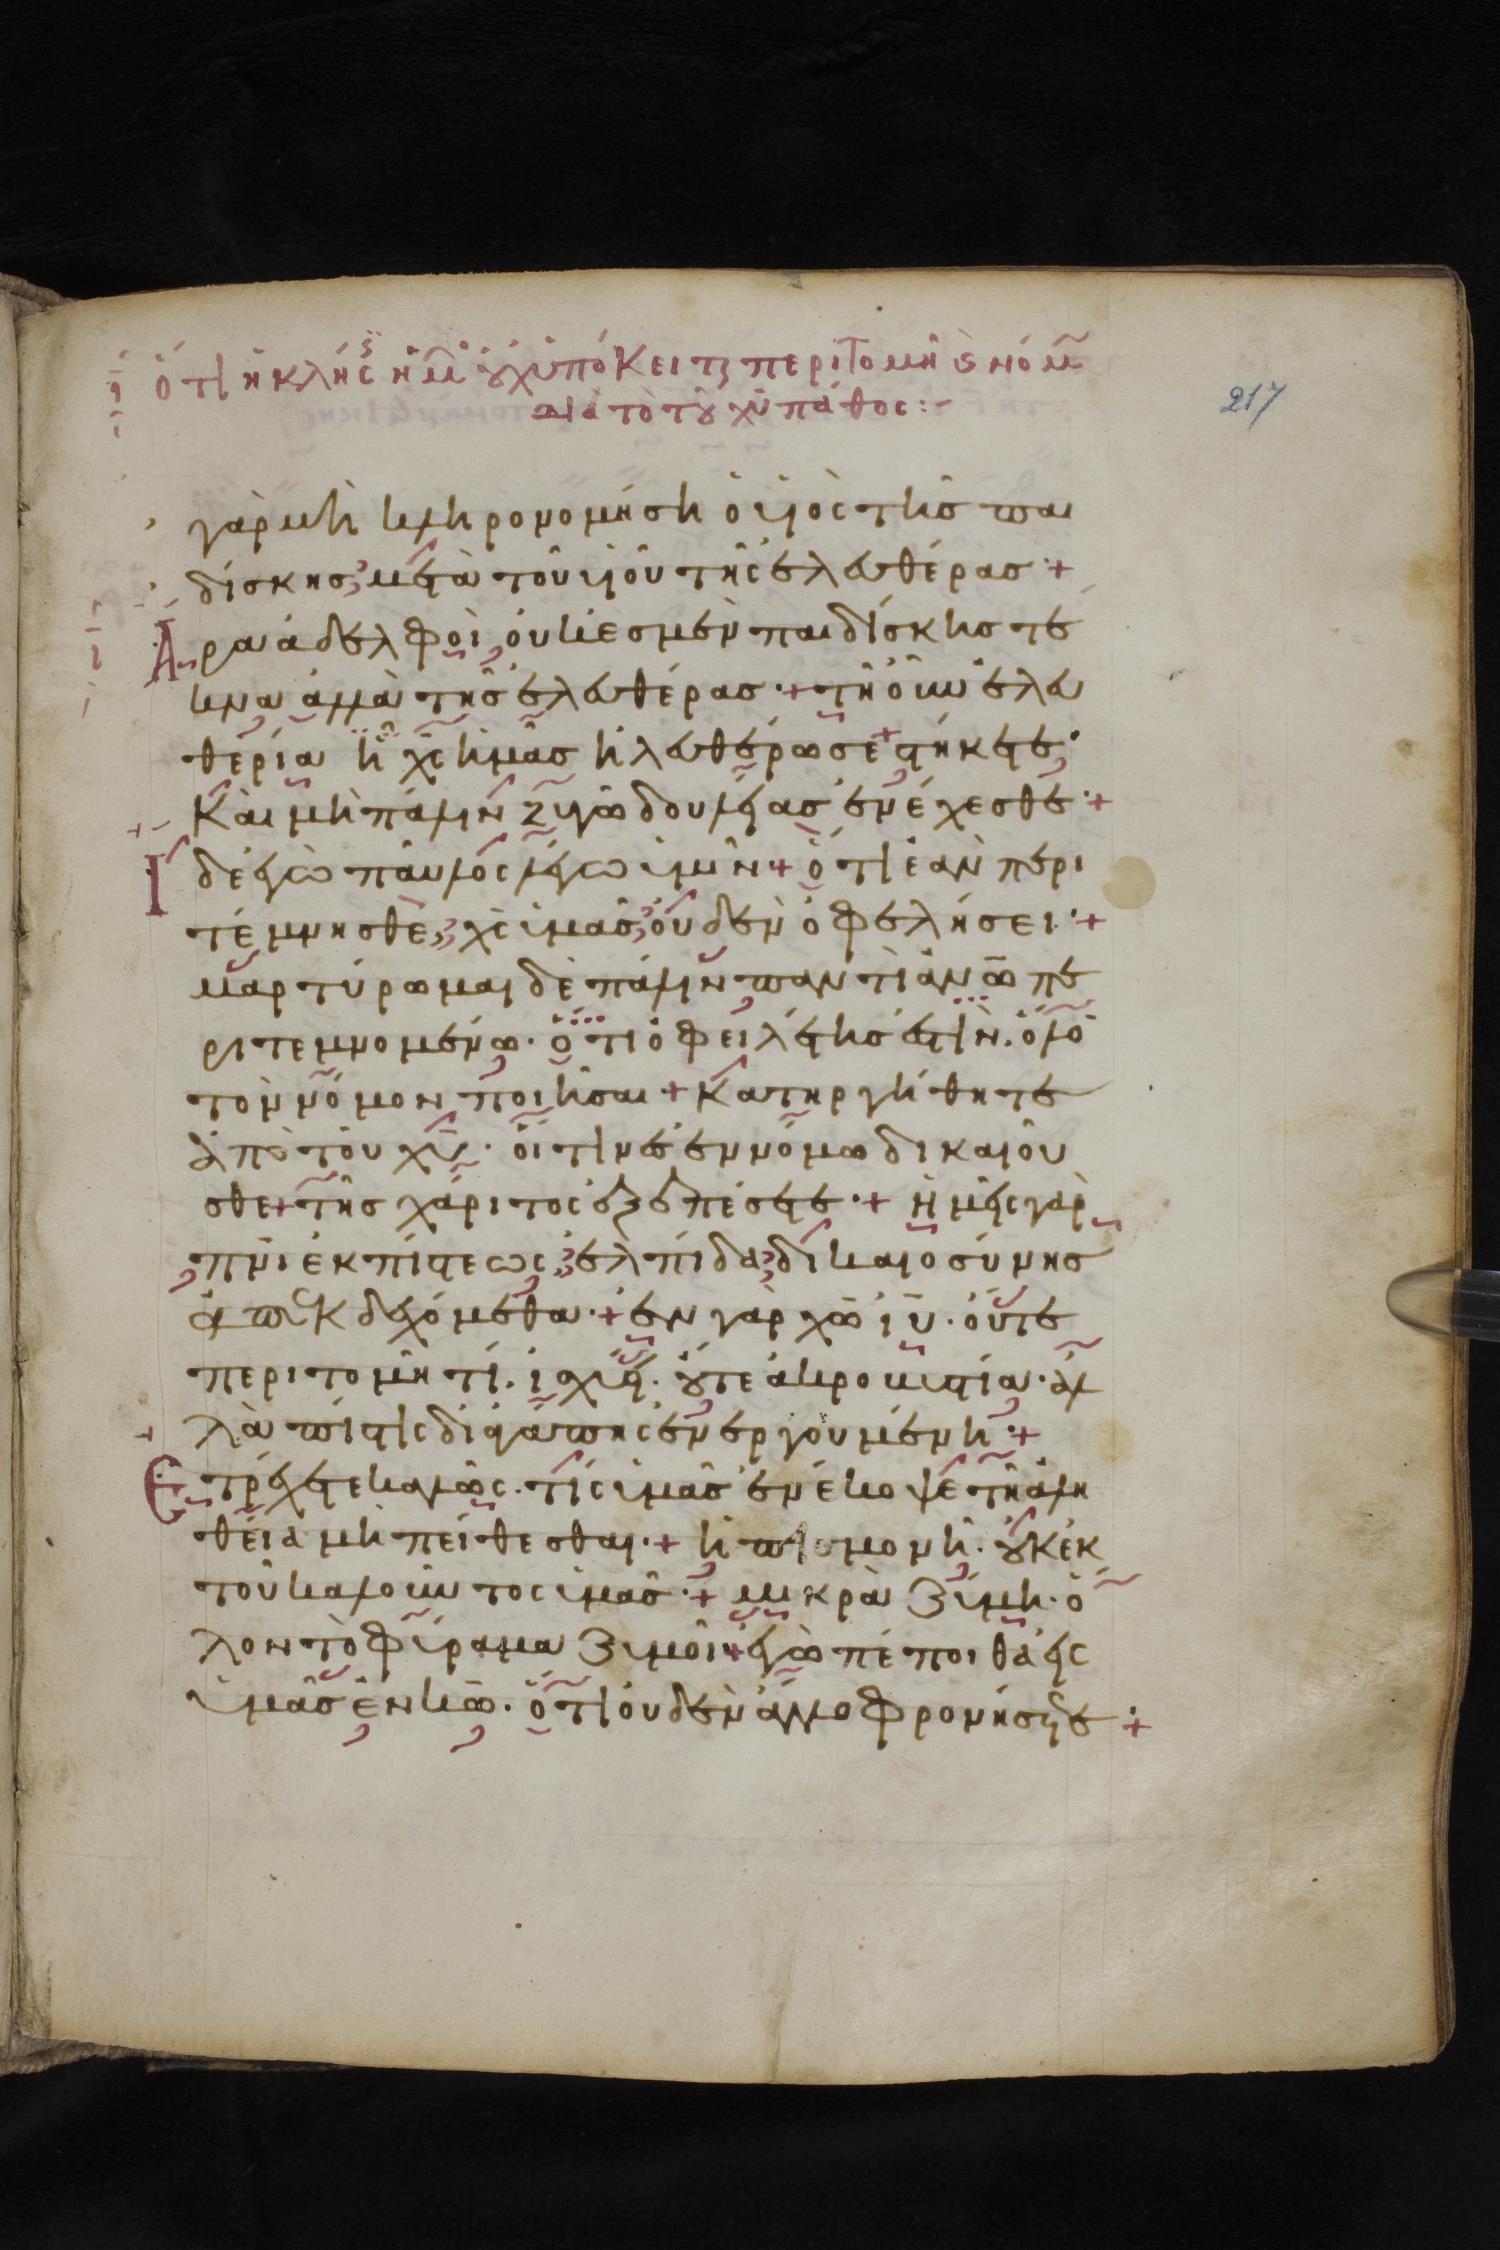 ὅτι ἡ κλῆσ ἡμ οὐχ ὑπόκειται περιτομῆ νόμ
διὰ τὸ τοῦ χυ πάθος:-
217
γὰρ μὴ κληρονομήση ὁ υἱὸς τῆσ παι
δίσκησ μετὰ τοῦ υἱοῦ τῆς ἐλευθέρασ +
Ἄρα ἀδελφοὶ οὐκ ἐσμὲν παιδίσκησ τέ
κνα ἀλλὰ τῆσ ἐλευθέρασ + τῆ οὖν ἐλευ
θερία ἧ χς ἡμᾶσ ἠλευθέρωσε + στήκετε
Καὶ μὴ πάλιν ζυγῶ δουλείασ ἐνέχεσθε +
Ἴδε ἐγὼ παῦλος λέγω ὑμῖν + ὅτι ἐὰν περι
τέμνησθε, χς ὑμᾶσ οὐδὲν ὀφελήσει +
μαρτύρωμαι δὲ πάλιν παντὶ ἀνω πε
ριτεμνομένω. ὅτι ὀφειλέτησ ἐστὶν. ὅλο
τὸν νόμον ποιῆσαι + Κατηργήθητε
ἀπὸ τοῦ χυ. οἵτινεσ ἐν νόμω δικαιοῦ
σθε + τῆσ χάριτος ἐξεπέσετε + Ἡμεῖς γὰρ
πνι ἐκ πίστεως, ἐλπίδα δικαιοσύνησ
ἀπεκδεχόμεθα + ἐν γὰρ χω ιυ. οὔτε
περιτομή τι. ἰσχύει. οὔτε ἀκροβυστία. ἀλ
λὰ πίστις δι ἀγάπης ἐνεργουμένη +
Ἐτρέχετε καλῶς. τίς ὑμᾶσ ἐνέκοψε τῆ ἀλη
θεία μὴ πείθεσθαι + ἡ πεισμονὴ. οὐκ ἐκ
τοῦ καλοῦντος ὑμᾶσ + μικρὰ ζύμη. ὅ
λον τὸ φύραμα ζυμοῖ + ἐγὼ πέποιθα εἰς
ὑμᾶσ ἐν κω. ὅτι οὐδὲν ἄλλο φρονήσητε +